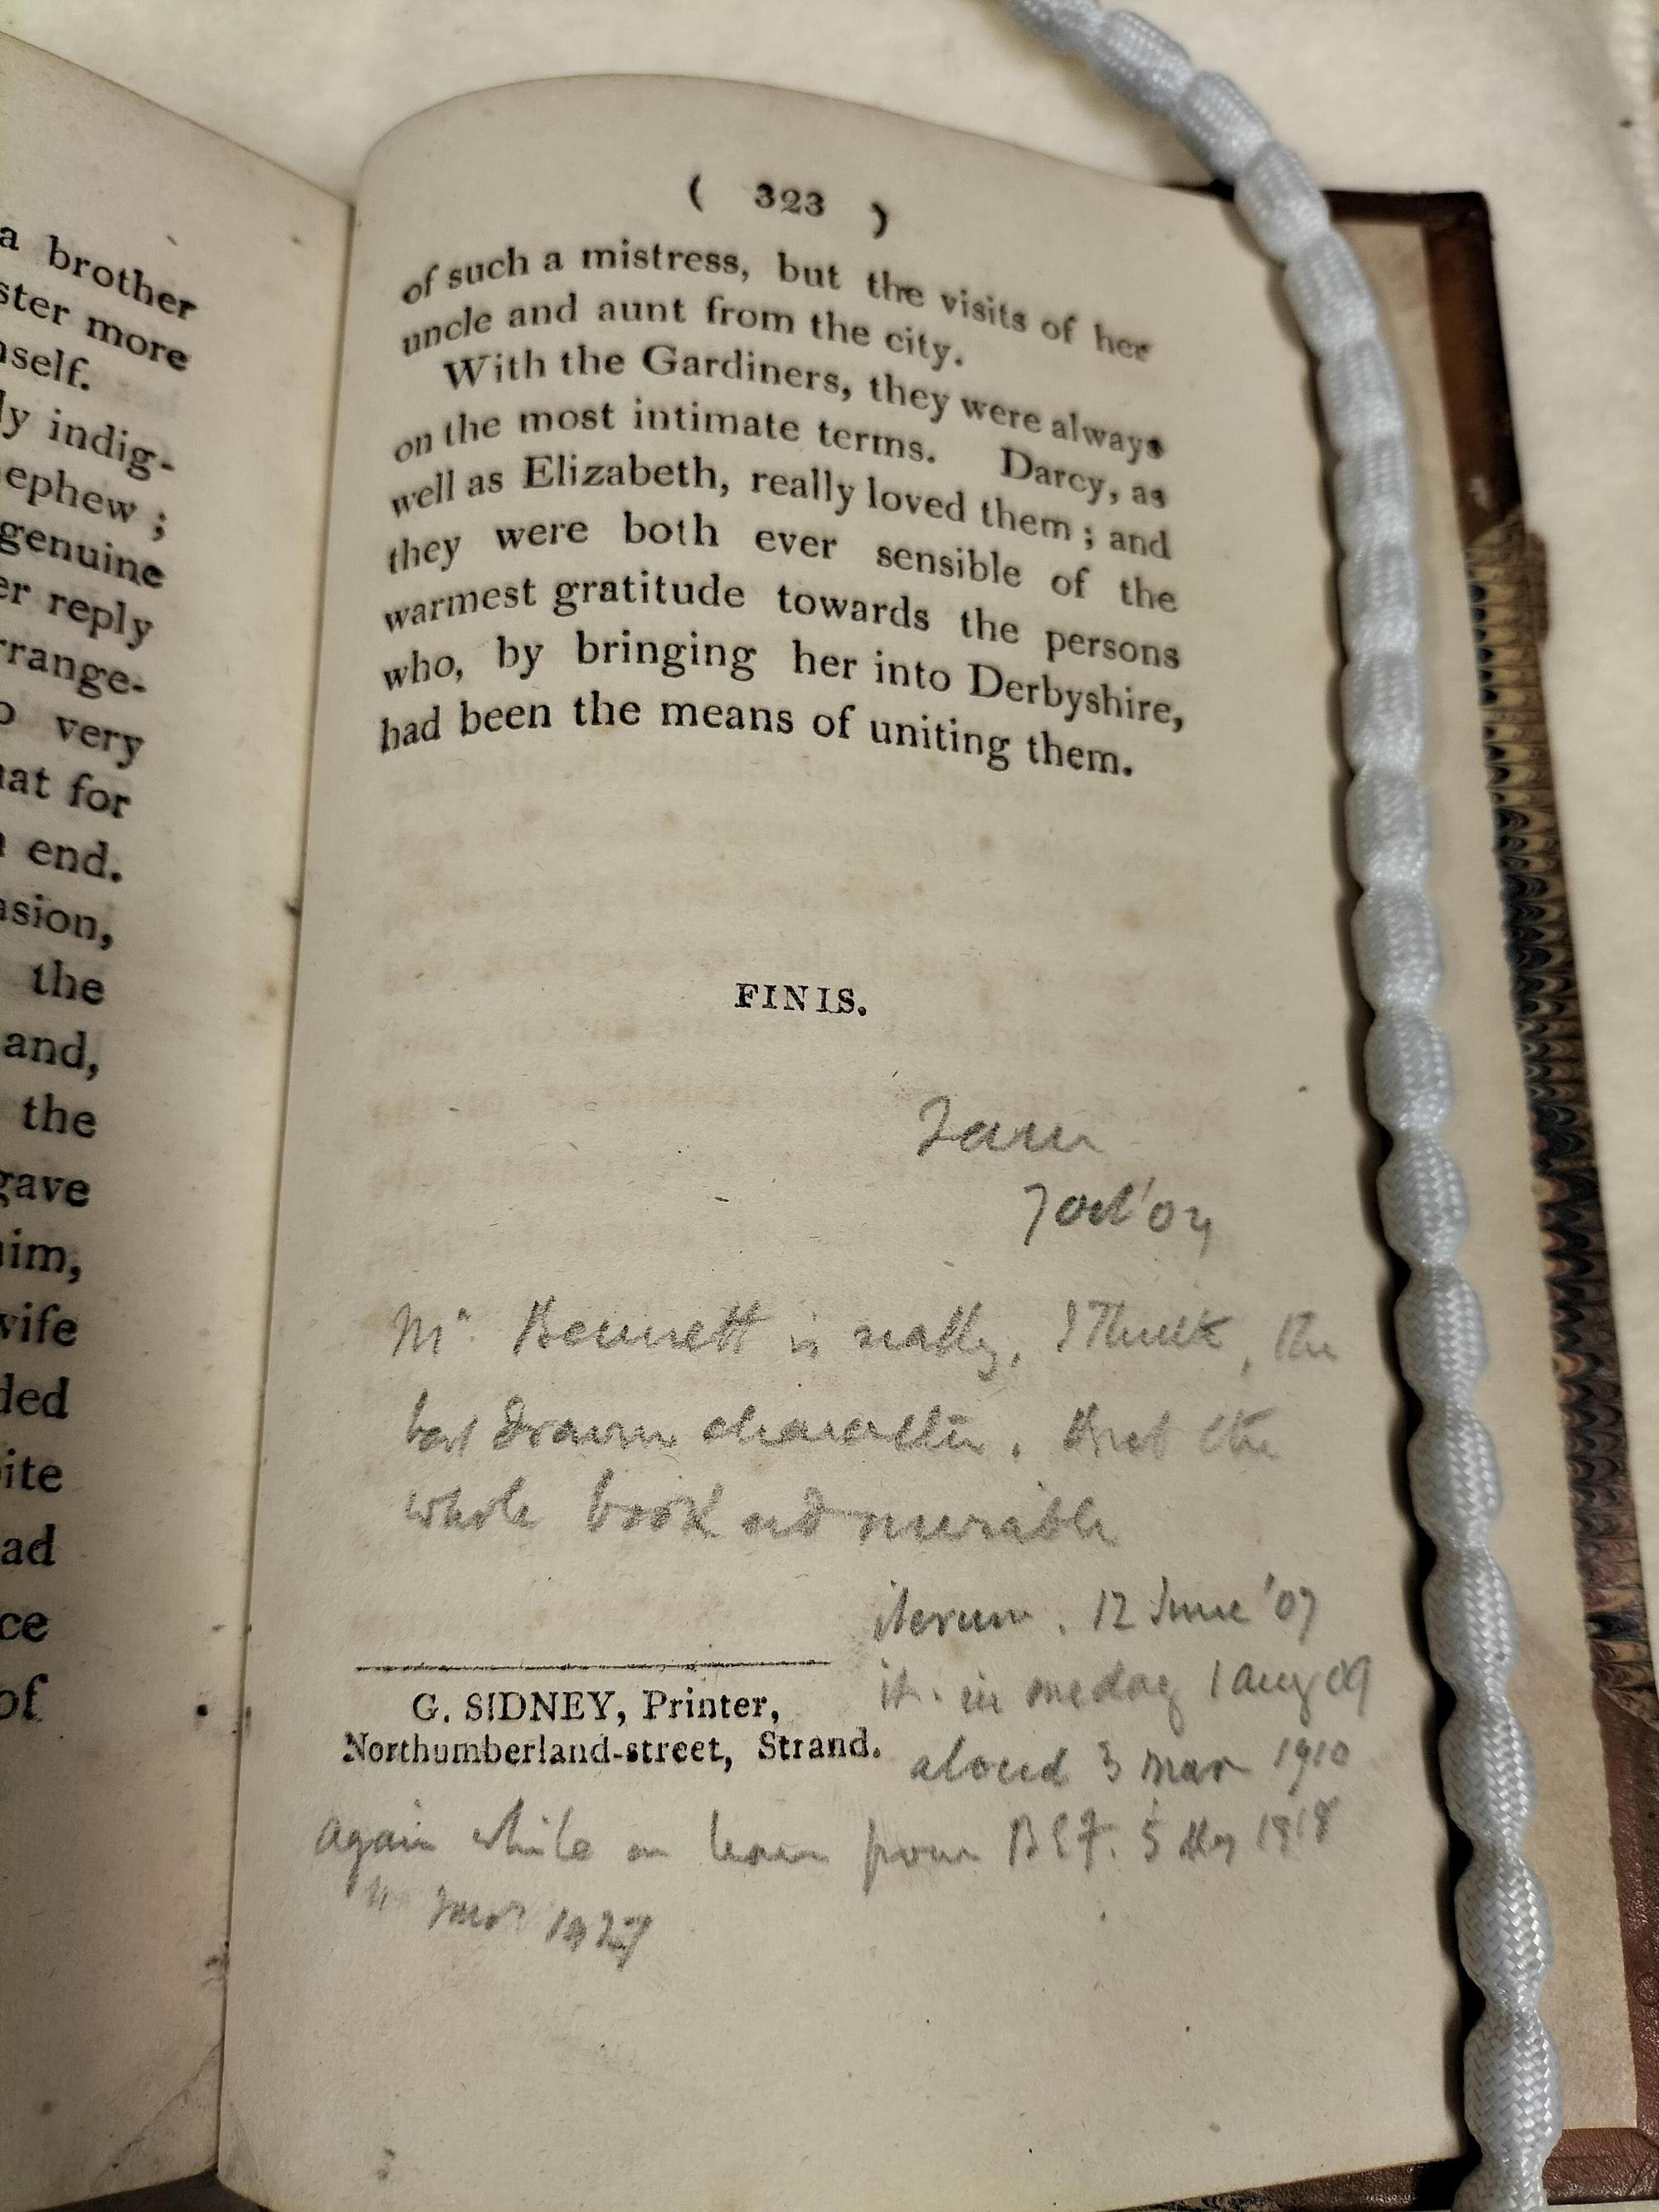 a brother
ster more
nself.
ly indig-
ephew ;
genuine
er reply
rrange-
o very
nat for
end.
asion,
the
and,
the
gave
him,
wife
ded
ite
ad
ce
of
( 323 )
of such a mistress, but the visits of her
uncle and aunt from the city.
With the Gardiners, they were always
on the most intimate terms. Darcy, as
well as Elizabeth, really loved them ; and
they were both ever sensible of the
warmest gratitude towards the persons
who, by bringing her into Derbyshire,
had been the means of uniting them.
FINIS.
7 Oct '04
Mr Bennett is really, I think, the
best drawn character. But the
whole book admirable
iterum. 12 June '07
it. in one day 1 Aug 09
G. SIDNEY, Printer,
Northumberland-street, Strand.
aloud 3 Mar 1910
again while on leave from BEF. 5 1918
" 1927